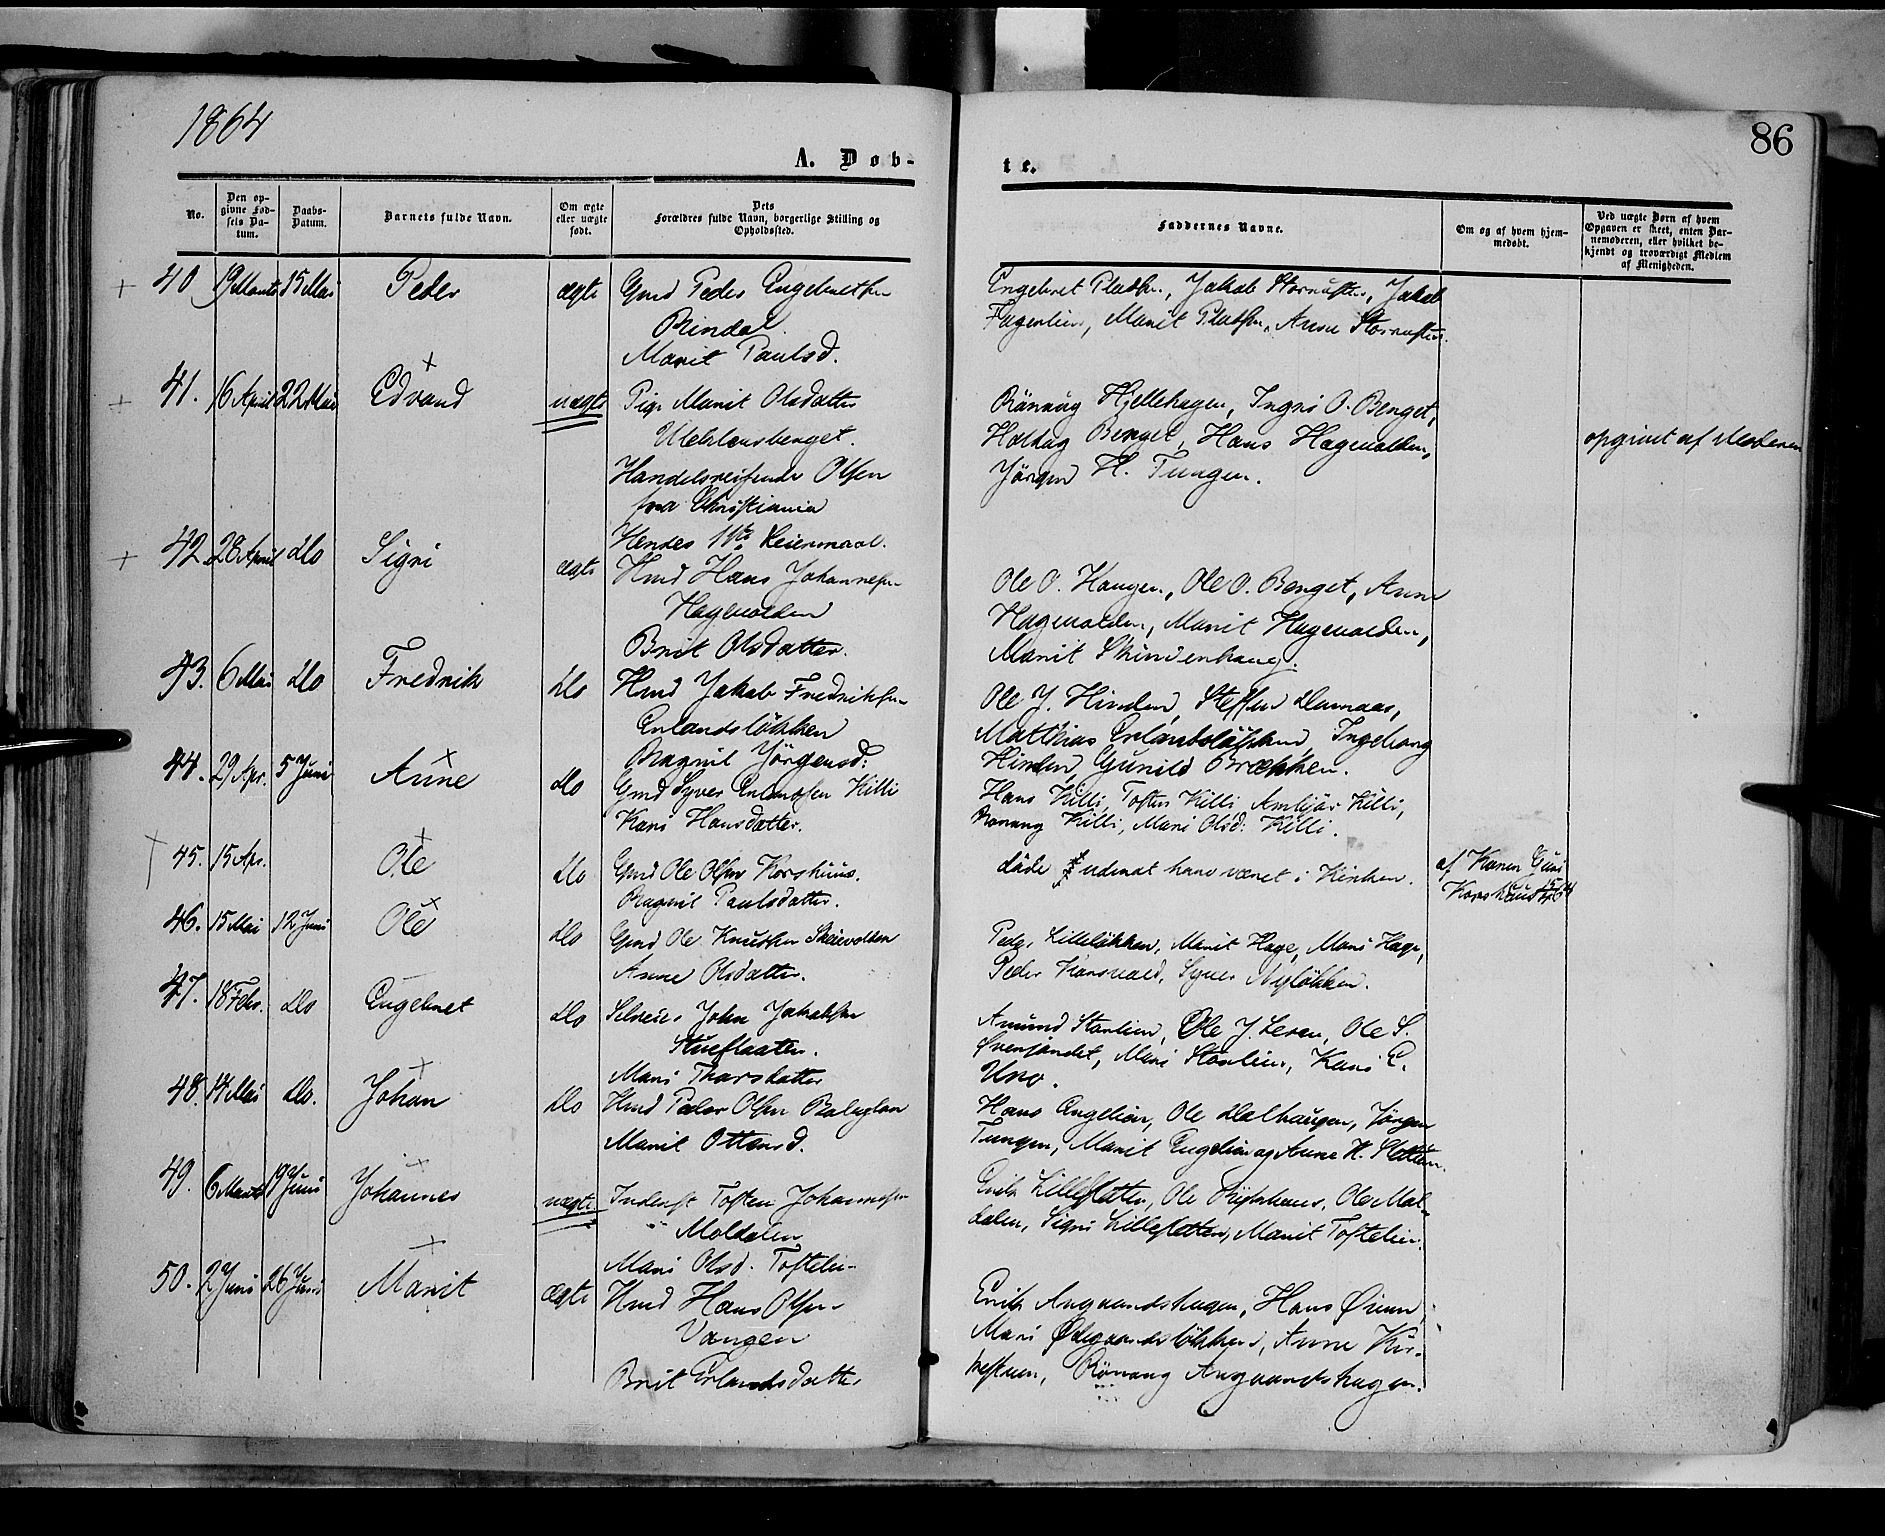 1864
86
A. Døb-
te.
No.
Den op-
givne Fød-
sels Da-
tum.
Daabs-
Datum.
Barnets fulde Navn.
Om ægte
eller uægte
født.
Dets
Forældres fulde Navn, borgerlige Stilling og
Opholdssted.
Faddernes Navne.
Om og af hvem hjem-
medøbt.
Ved uægte Børn af hvem
Opgaven er skeet, enten Bar-
nemoderen, eller hvilket be-
kjendt og troværdigt Medlem
af Menigheden.
40 19 Marts 15 Mai Peder ægte Gmd Peder Engebretsen
Rindal.
Marit Paulsd.
Engebret Pladsen, Jakob Stornæsten, Jakob
Fagerlien, Marit Pladsen, Anne
41. 16 April 22 Mai Edvard uægte Pige Marit Olsdatter
Uchlensberget.
Handelsreisende Olsen
fra Christiania
Hendes 1ste Leiermaal.
Rönnaug Hjellehagen, Ingri O. Berget,
Berget, Hans Hagevolden,
Jörgen H. Tungen.
opgivet af Moderen
42. 28 April do Sigri ægte Hmd Hans Johannesen
Hagevolden
Brit Olsdatter.
Ole O. Haugen, Ole O. Berget, Anne
Hagevolden, Marit Hagevolden,
Marit Skindenhaug.
43. 6 Mai do Fredrik do Hmd Jakob Fredriksen
Erlandsløkken
Ragnil Jörgensd.
Ole J. Hinden, Steffen
Matthias Erlandsløkken, Ingeborg
Hinden, Gunild Brækken.
44. 29 Apr. 5 Juni Anne do Gmd Syver Erlandsen Killi
Kari Hansdatter.
Hans Killi, Tosten Killi, Killi,
Rönnaug Killi, Mari Olsd. Killi.
45. 15 Apr. Ole do Gmd Ole Olsen Korshuus.
Ragnil Paulsdatter.
döde udenat have været i Kirken.
af Konen Guri
46. 15 Mai 12 Juni Ole do Gmd Ole Knudsen Skievolden
Anne Olsdatter.
Peder Lilleløkken, Marit Hage, Mari Hage,
Peder Korsvold, Syver Nyløkken.
47. 18 Febr. do Engebret do Selveier John Jakobsen
Stueflaaten.
Mari Thorsdatter
Amund Stavlien, Ole J. Leren, Ole S.
Mari Stavlien, Kari E.
48. 14 Mai do. Johan do Hmd Peder Olsen
Marit Ottersd.
Hans Engelien, Ole Dalhaugen, Jörgen
Tungen, Marit Engelien og Anne H.
49. 6 Marts 19 Juni Johannes uægte Inderst Tosten Johannesen
Moldalen
Mari Olsd. Toftelien
Erik Lillesletten, Ole Ole Mol-
dalen, Sigri Lillesletten, Marit Toftelien.
50. 2 Juni 26 Juni Marit ægte Hmd Hans Olsen
Vangen
Brit Erlandsdatter
Erik Angaardshagen, Hans Øien,
Mari Ødegaardsløkken, Anne Kir-
kestuen, Rönnaug Angaardshagen.